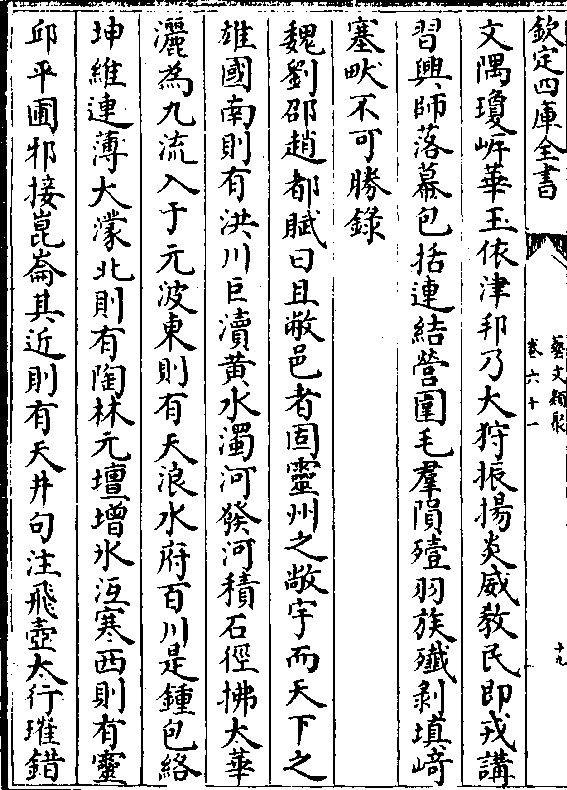 欽定四庫全書
藝文類聚
卷六十一
十九
文隅瓊岓華玉依津邦乃大狩振揚炎威教民即戎講
習興師落幕包括連結營圍毛羣隕殪羽族殲剥填崎
塞畎不可勝錄
魏劉邵趙都賦曰且敝邑者固靈州之敞宇而天下之
雄國南則有洪川巨瀆黄水濁河發河積石徑拂大華
灑為九流入于元波東則有天浪水府百川是鍾包絡
坤維連薄大濛北則有陶林元壇增氷沍寒西則有靈
邱平圃邪接崑崙其近則有天井句注飛壺太行璀錯